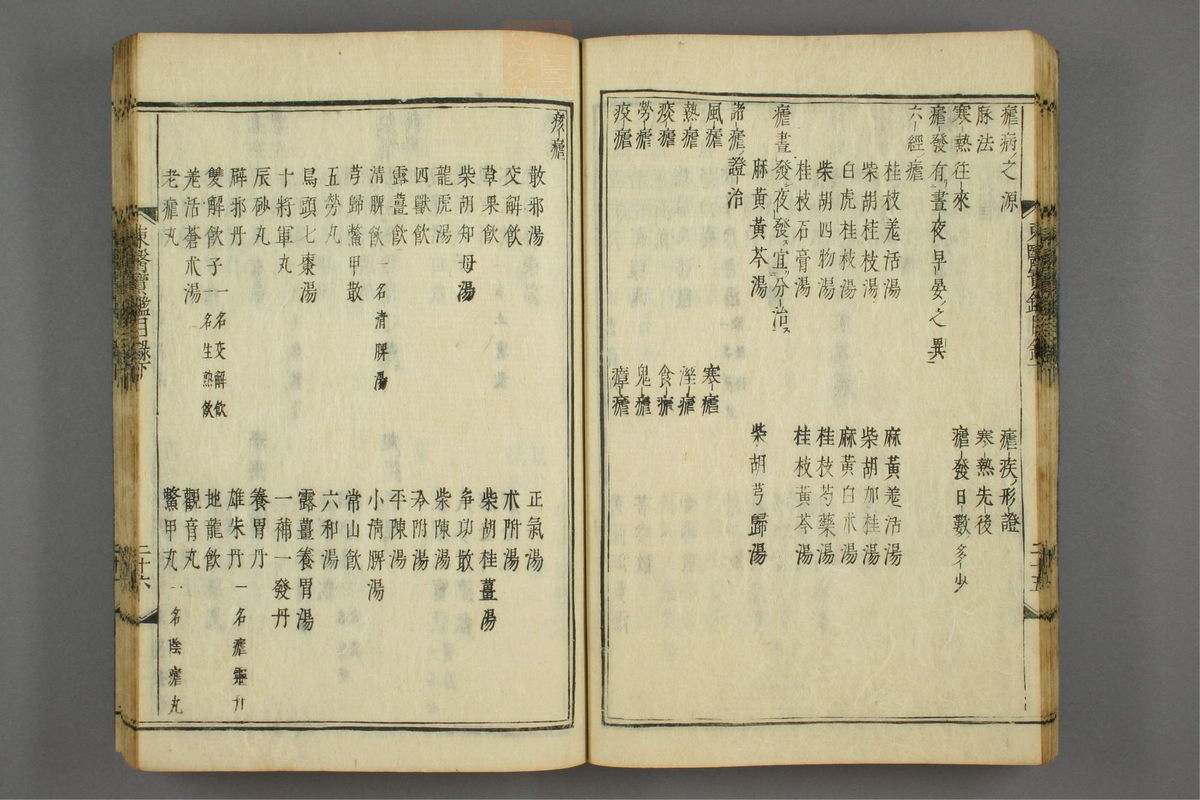 瘧病ノ之源
瘧疾ノ形證
脉法
寒熱往來
寒熱先後
瘧發有晝夜早晏ノ之異
瘧發日數ノ多少
六經瘧
桂枝羌活湯
麻黃羌活湯
柴胡桂枝湯
柴胡加桂湯
白虎桂枝湯
麻黃白朮湯
柴胡四物湯
桂枝芍藥湯
桂枝石膏湯
桂枝黃芩湯
瘧晝發夜發ス宜分治ス
麻黃黃芩湯
柴胡芎歸湯
諸瘧證治
風瘧
寒瘧
熱瘧
溼瘧
痰瘧
食瘧
勞瘧
鬼瘧
疫瘧
瘴瘧
東醫寶鑑目錄下
二十五
痎瘧
散邪湯
正氣湯
交解飮
朮附湯
草果飮
柴胡桂薑湯
柴胡知母湯
爭功散
龍虎湯
柴陳湯
四獸飮
冷附湯
露薑飮
平陳湯
清脾飮一名清脾湯
小清脾湯
芎歸鱉甲散
常山飮
五勞丸
六和湯
烏頭七棗湯
露薑養胃湯
十將軍丸
一補一發丹
辰砂丸
養胃丹
辟邪丹
雄朱丹一名瘧靈丹
雙解飮子一名交解飮名生熟飮
地龍飮
羌活蒼朮湯
觀音丸
老瘧丸
鱉甲丸一名陰瘧丸
東醫寶鑑目錄下
二十六